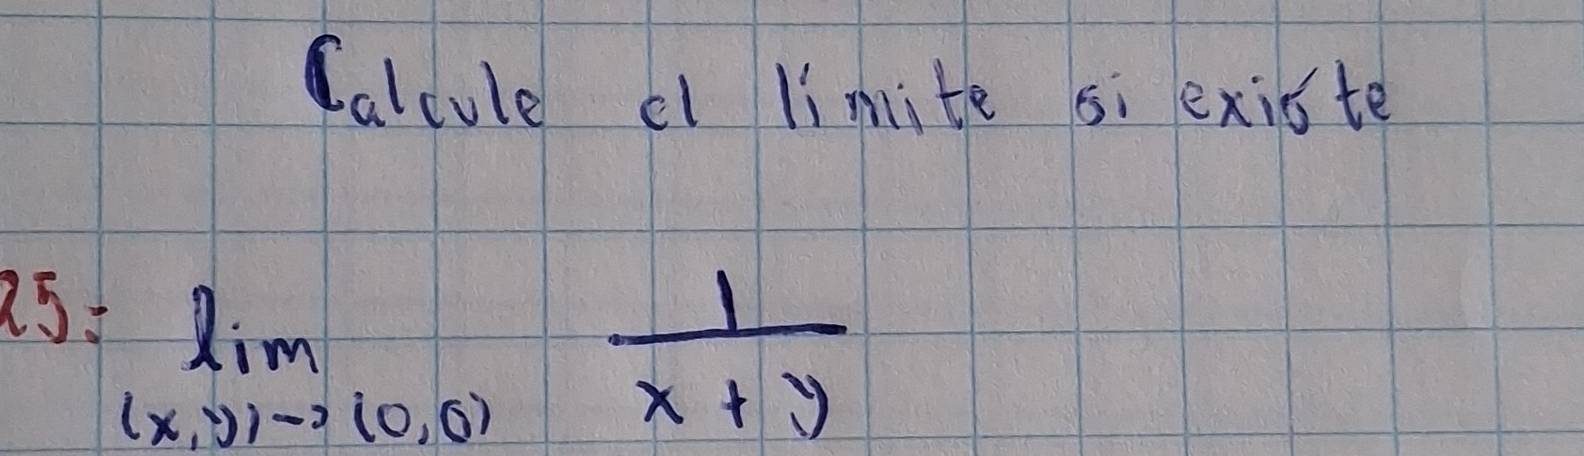 Calcule el límite si existe
25: lim 1
(x,y)→(0,0) x + y